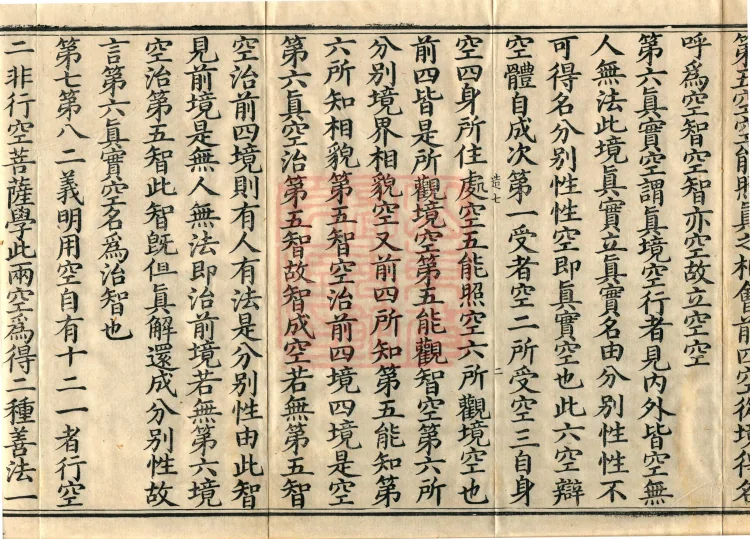 第五空空能照真不相會前四空從境得名
呼爲空智空智亦空故立空空
第六眞實空謂眞境空行者見內外皆空無
人無法此境眞實立眞實名由分別性性不
可得名分別性性空即眞實空也此六空辯
空體自成次第一受者空二所受空三自身
空四身所住處空五能照空六所觀境空也
造七
二
前四皆是所觀境空第五能觀智空第六所
分別境界相貌空又前四所知第五能知第
六所知相貌第五智空治前四境四境是空
第六眞空治第五智故智成空若無第五智
空治前四境則有人有法是分別性由此智
見前境是無人無法即治前境若無第六境
空治第五智此智旣但眞解還成分別性故
言第六眞實空名爲治智也
第七第八二義明用空自有十二一者行空
二非行空菩薩學此兩空爲得二種善法一